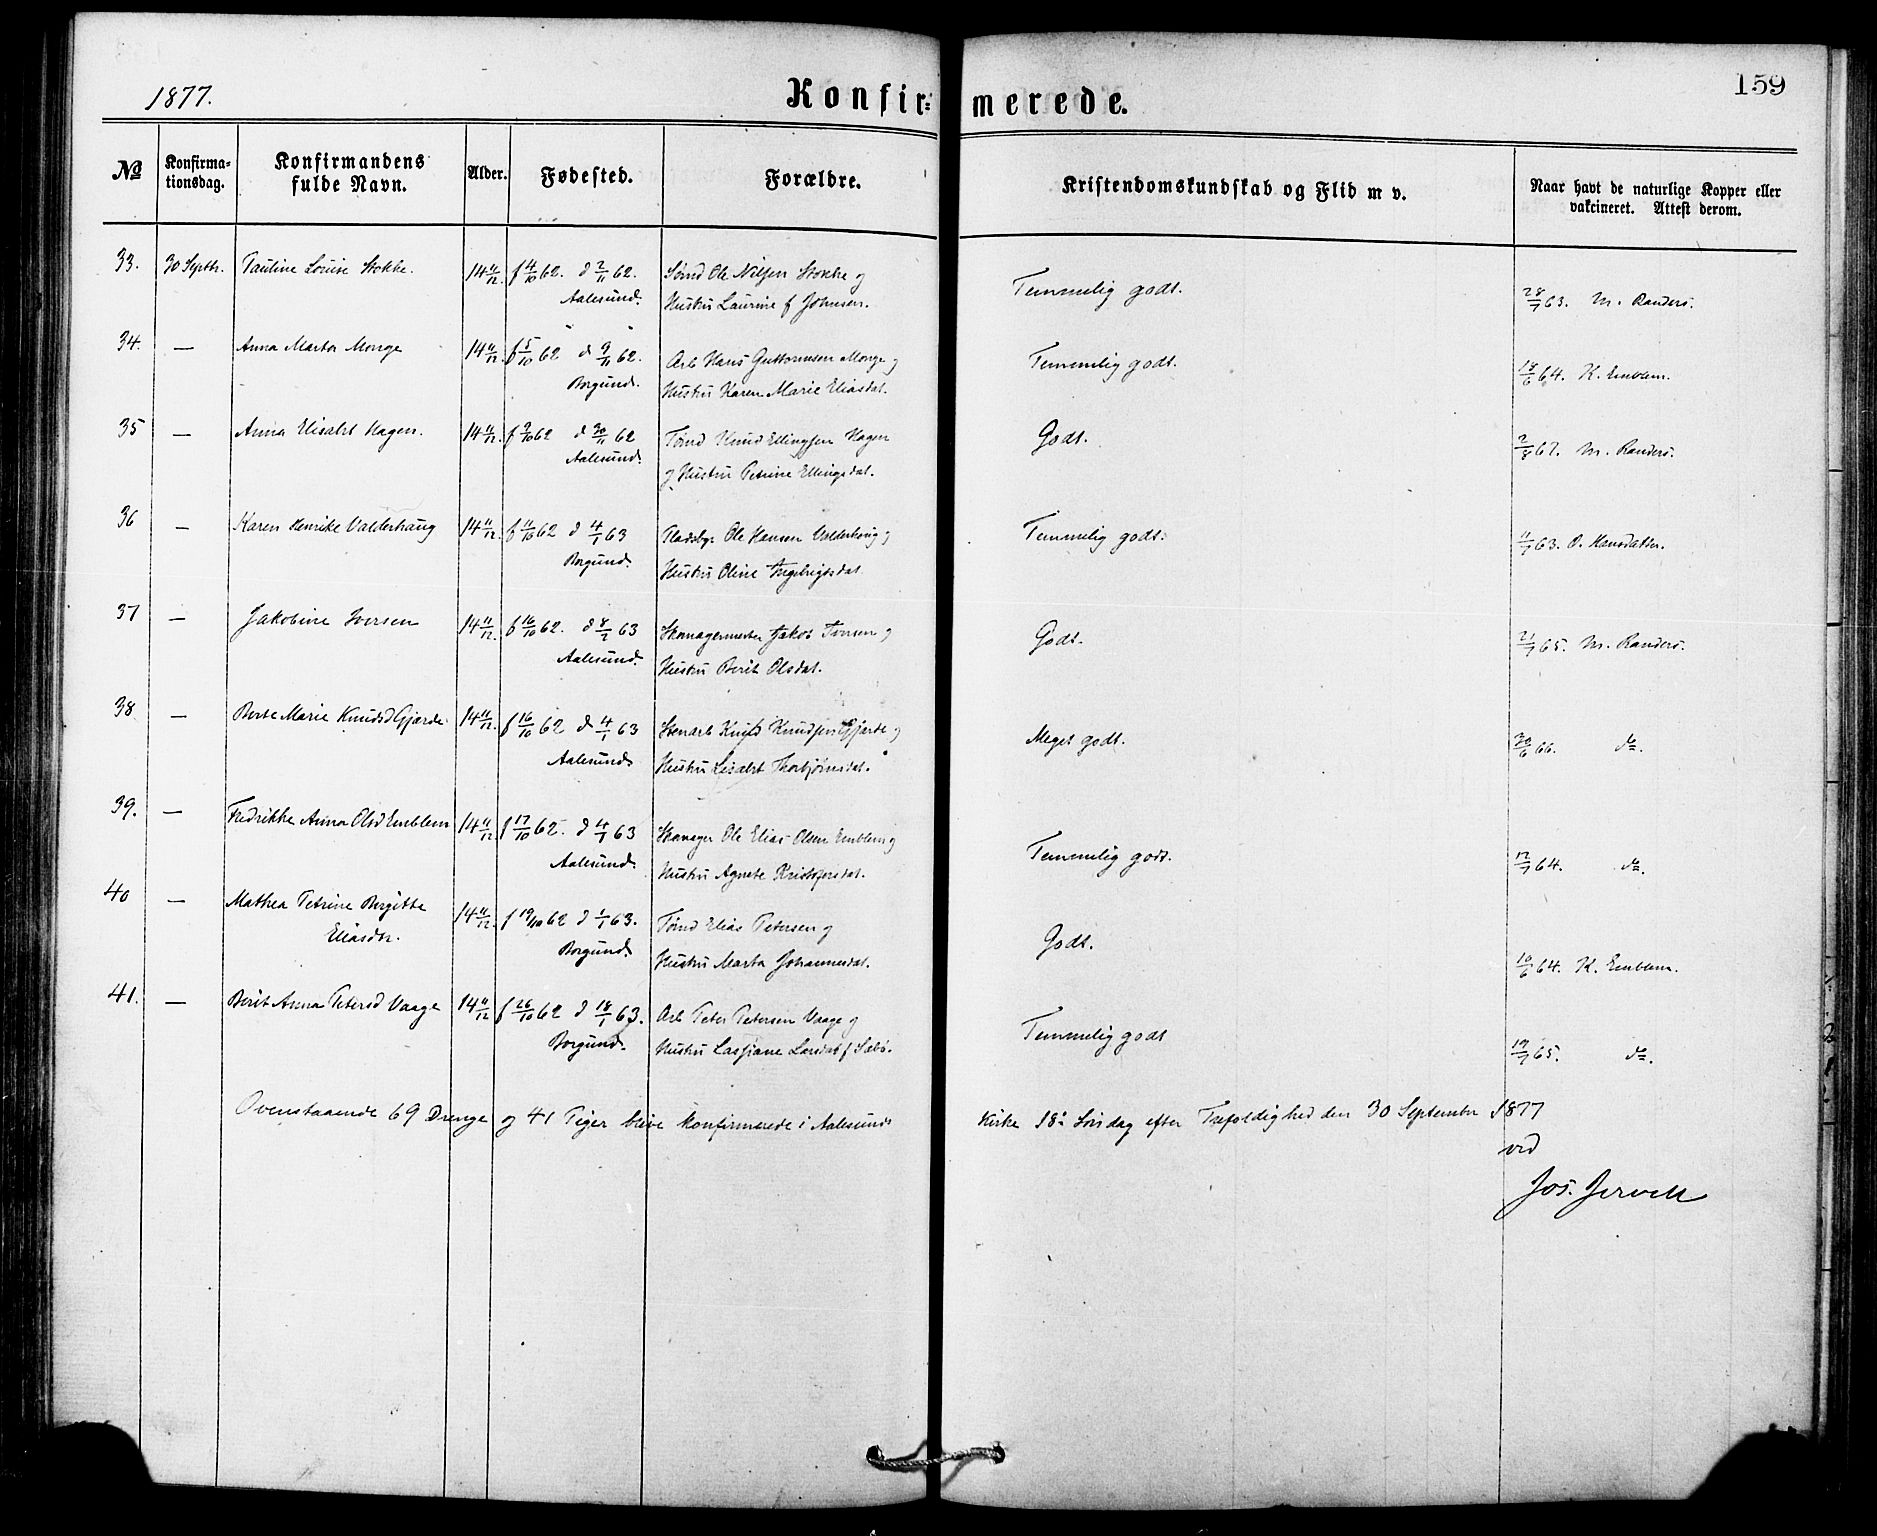 1877.
Konfirmerede.
159
No
Konfirma-
tionsdag.
Konfirmandens
fulde Navn.
Alder.
Fødested.
Forældre.
Kristendomskundskab og Flid m v.
Naar havt de naturlige Kopper eller
vakcineret. Attest derom.
33. 30 Septbr. Pauline Louise Stokke. 14 11/12. f 4/10 62. d 2/11 62. Sømd Ole Nilsen Stokke og
Aalesund. Hustru Laurine f Johnsen.
Temmelig godt. 28/7 63. M. Randers.
34. — Anna Marta Monge 14 11/12. f 5/10 62 d 9/11 62. Arb Hans Guttormsen Monge og
Borgund. Hustru Karen Marie Eliasdat.
Temmelig godt. 18/6 64. K. Emblem.
35 — Anna Elisabet Hagen. 14 11/12. f 9/10 62 d 30/11 62 Tømd Knud Ellingsen Hagen
Aalesund. og Hustru Petrine Ellingsdat.
Godt. 2/8 67. M. Randers.
36 — Karen Henrike Valderhaug 14 11/12. f 11/10 62 d 4/1 63 Pladsbr Ole Hansen Valderhaug og
Borgund. Hustru Oline Ingebrigtsdat.
Temmelig godt. 11/7 63. O. Hansdatter.
37 — Jakobine Iversen 14 11/12. f 16/10 62. d 8/2 63 Skomagermester Jakob Iversen og
Aalesund. Hustru Berit Olsdat.
Godt. 21/7 65. M. Randers.
38 — Berte Marie Knudsd Gjærde 14 11/12. f 16/10 62 d 4/1 63 Stenarb Knud Knudsen Gjærde og
Aalesund. Hustru Lisabet Thorbjørnsdat.
Meget godt. 30/6 66. do.
39. — Fredrikke Anna Olsd Emblem 14 11/12. f 17/10 62. d 4/1 63 Skomager Ole Elias Olsen Emblem og
Aalesund. Hustru Agnete Kristofersdat.
Temmelig godt. 12/7 64. do.
40 — Mathea Petrine Bergitte 14 11/12. f 19/10 62 d 1/1 63. Tømd Elias Petersen og
Eliasdtr. Borgund. Hustru Marta Johannesdat.
Godt. 10/6 64. K. Emblem.
41. — Berit Anna Petersd Vaage 14 11/12 f 26/10 62 d 18/1 63. Arb Peter Petersen Vaage og
Borgund. Hustru Lassiane Larsdat f Sæbø.
Temmelig godt 19/7 65. do.
Ovenstaaende 69 Drenge og 41 Piger bleve konfirmerede i Aalesunds Kirke 18de Søndag efter Trefoldighed den 30 September 1877
ved
Jos. Jervell